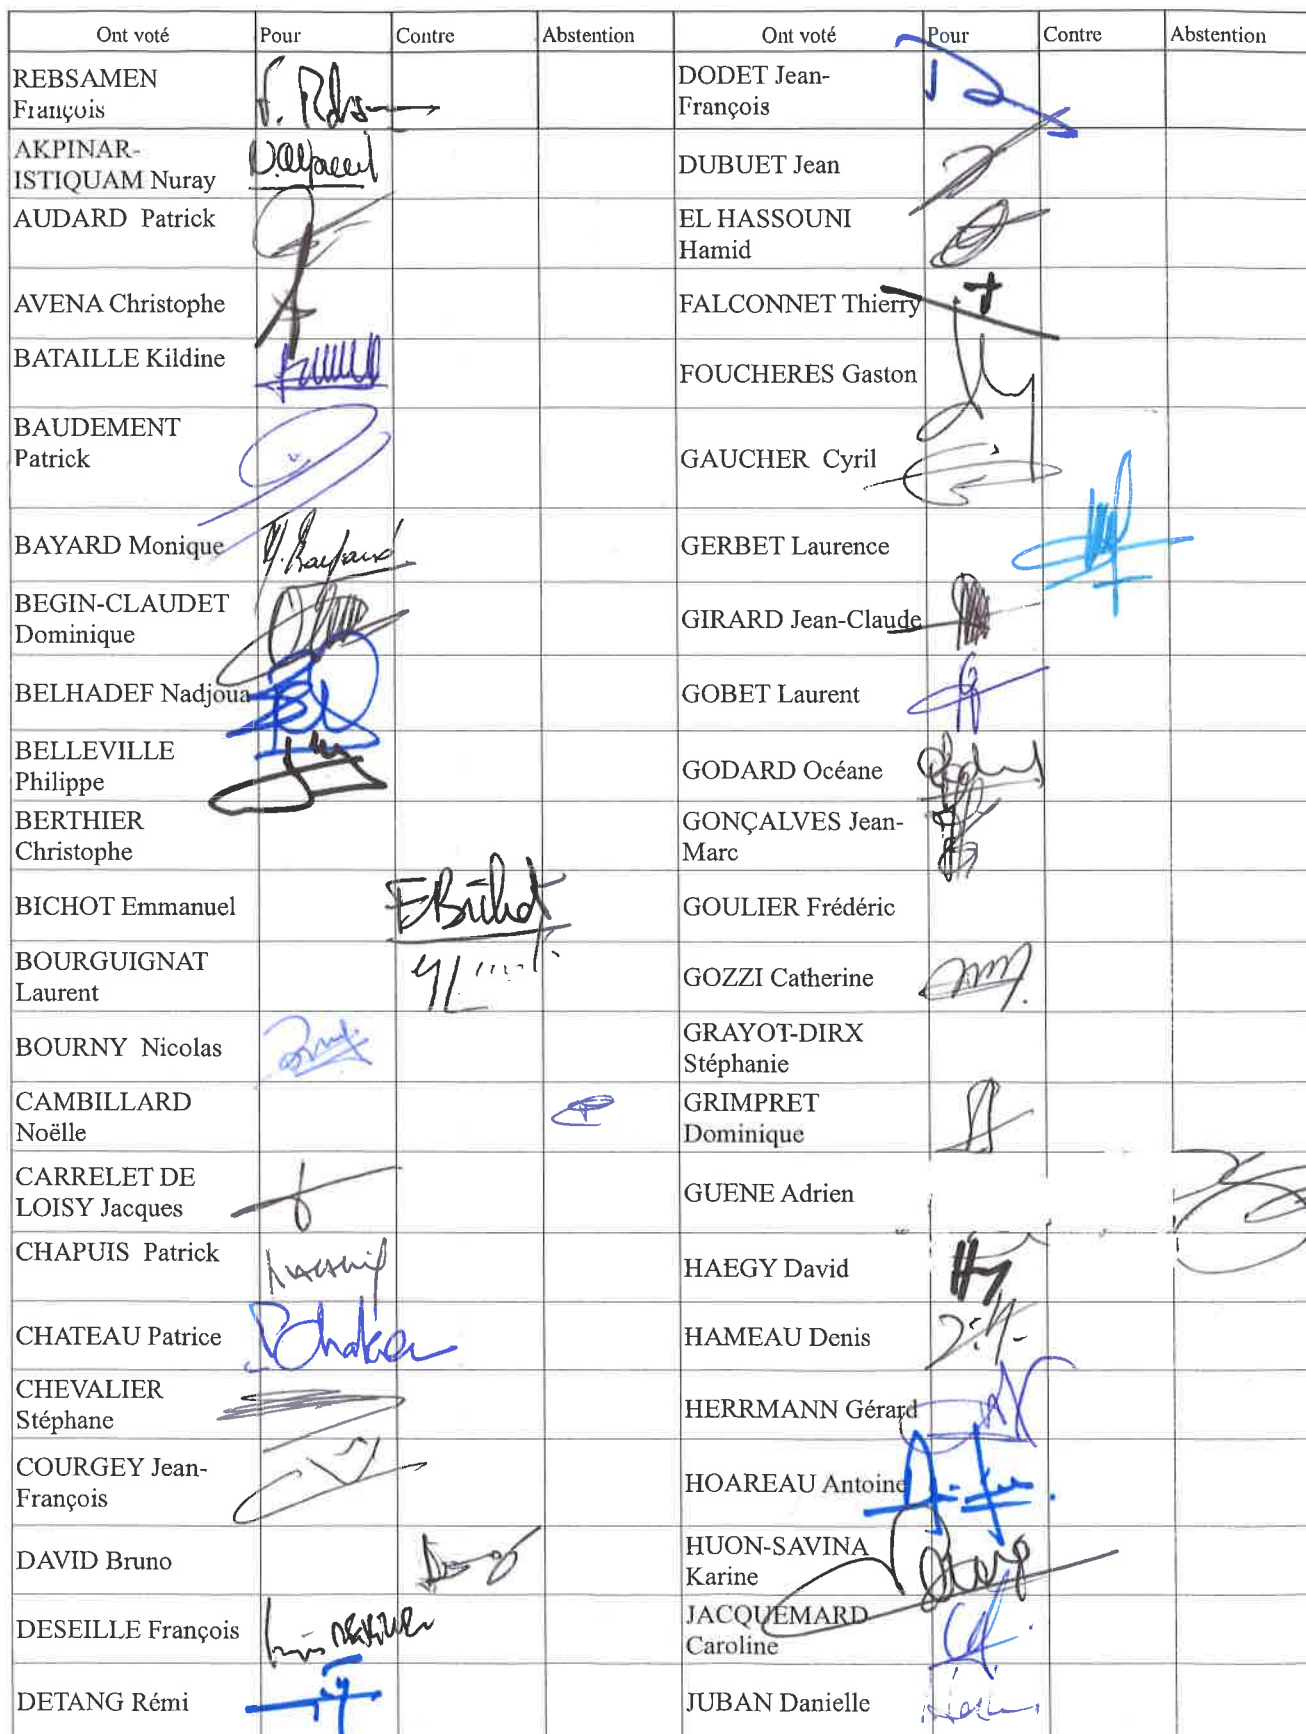 Ont voté Pour Contre Abstention
REBSAMEN
François
AKPINAR-
ISTIQUAM Nuray
AUDARD Patrick
AVENA Christophe
BATAILLE Kildine
BAUDEMENT
Patrick
BAYARD Monique
M. Bayard
BEGIN-CLAUDET
Dominique
BELHADEF Nadjoua
BELLEVILLE
Philippe
BERTHIER
Christophe
BICHOT Emmanuel
EBichot
BOURGUIGNAT
Laurent
BOURNY Nicolas
CAMBILLARD
Noëlle
CARRELET DE
LOISY Jacques
CHAPUIS Patrick
CHATEAU Patrice
CHEVALIER
Stéphane
COURGEY Jean-
François
DAVID Bruno
DESEILLE François
DETANG Rémi
Ont voté Pour Contre Abstention
DODET Jean-
François
DUBUET Jean
EL HASSOUNI
Hamid
FALCONNET Thierry
FOUCHERES Gaston
GAUCHER Cyril
GERBET Laurence
GIRARD Jean-Claude
GOBET Laurent
GODARD Océane
GONÇALVES Jean-
Marc
GOULIER Frédéric
GOZZI Catherine
GRAYOT-DIRX
Stéphanie
GRIMPRET
Dominique
GUENE Adrien
HAEGY David
HAMEAU Denis
HERRMANN Gérard
HOAREAU Antoine
HUON-SAVINA
Karine
JACQUEMARD
Caroline
JUBAN Danielle